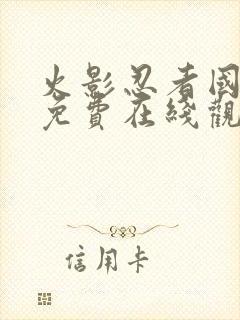 火影忍者國
免費在綫觀
信用卡